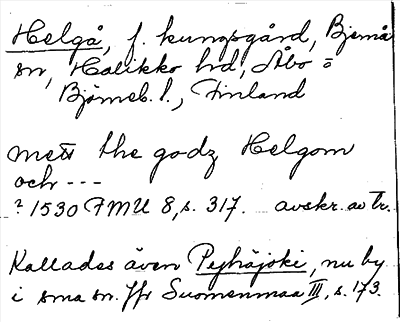 Helgå, f. kungsgård, Bjärnå
sn, Halikko hd, Åbo o
Björneb. l., Finland
mett the godz Helgom
och ---
? 1530 FMU 8, s. 317. avskr. av Tr.
Kallades även Pyhäjoki, nu by
i sma sn. Jfr Suomenmaa III, s. 173.